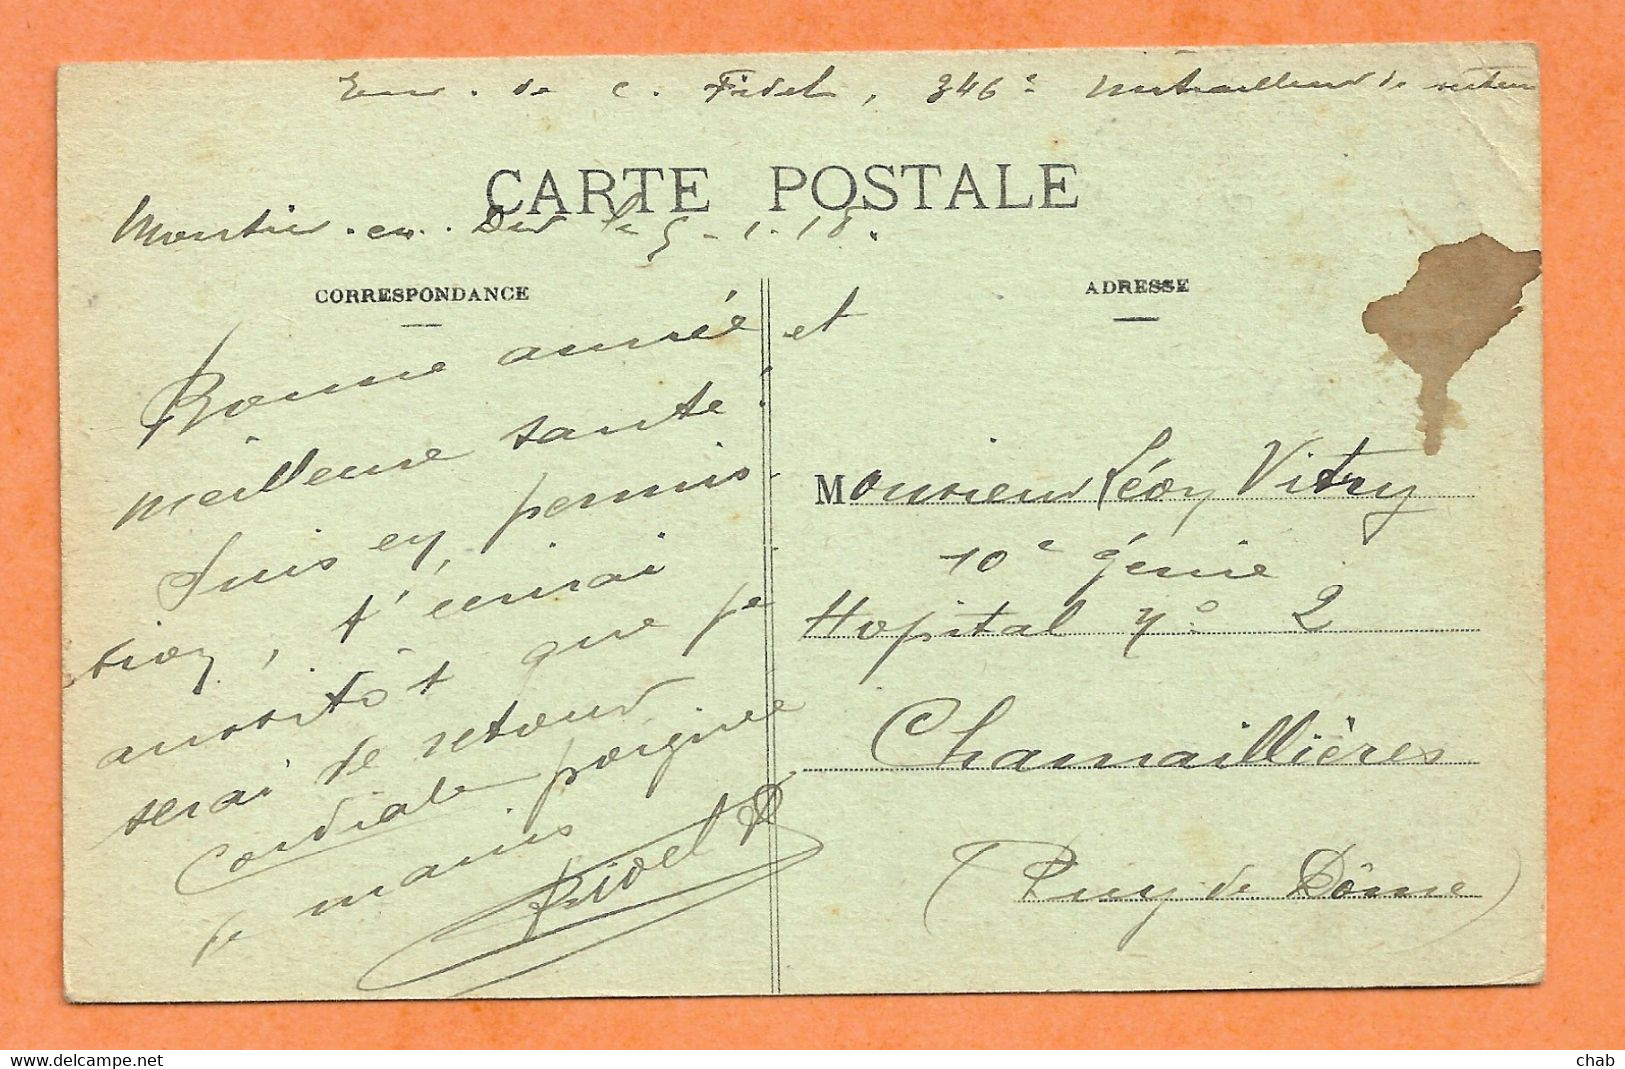 Env. de C. Fidel, 346e mitrailleur de secteur
CARTE POSTALE
Montier-en-Der le 5-1-18.
CORRESPONDANCE
ADRESSE
Bonne année et
meilleure santé!
Suis en permis
sion, t'écrirai
aussitôt que je
serai de retour
Cordiale poignée
de mains
Fidel
Monsieur Léon Vitry
10e génie
Hopital No 2
Chamaillières
(Puy de Dôme)
www.delcampe.net
chab